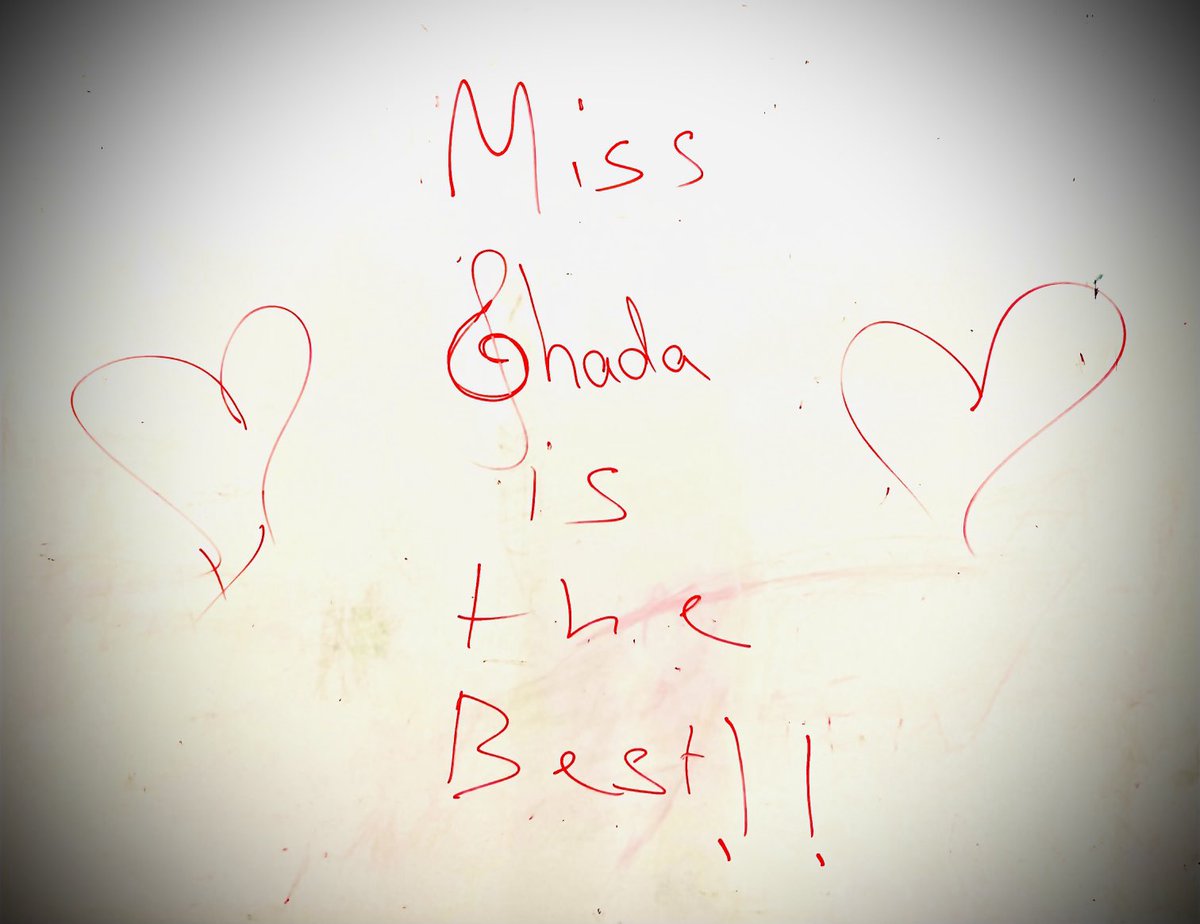 Miss
Ghada
is
the
Best!!